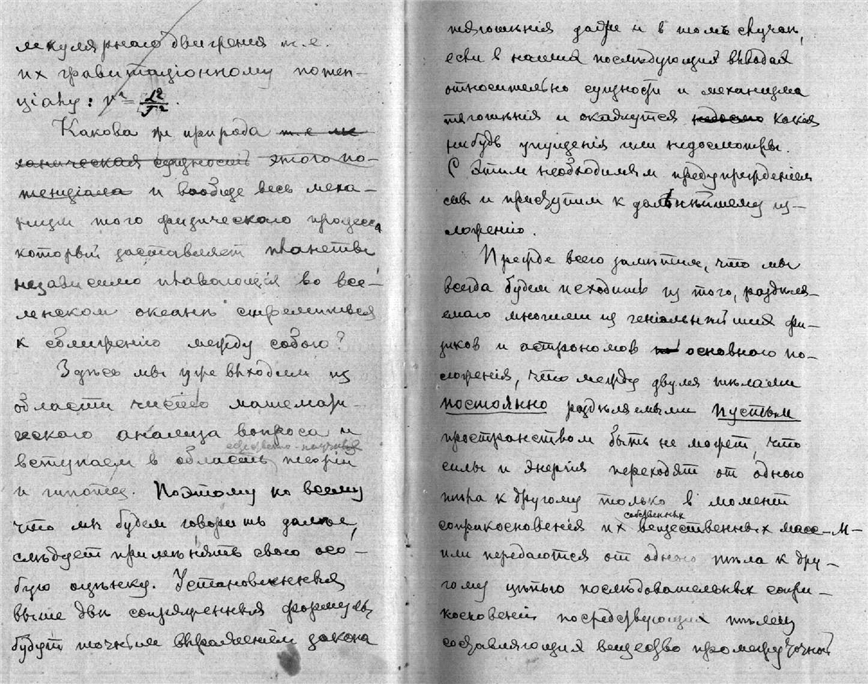 лекулярнаго движенія т.е.
их гравитаціонному потен-
ціалу: v² = L²/T².
Какова же природа т.е. ме
ханическая сущность этого по-
тенціала и вообще весь меха-
низм того физическаго процесса
который заставляет планеты
независимо плавающія во все-
ленском океанѣ стремиться
к сближенію между собою?
Здѣсь мы уже выходим из
области чистаго математи-
ческаго анализа вопроса и
естественно-научных
вступаем в область теорій
и гипотез. Поэтому ко всему
что мы будем говорить далѣе,
слѣдует примѣнять свою осо-
бую оцѣнку. Установленныя
выше двѣ сопряженныя формулы
будут точным выраженіем закона
тяготѣнія даже и в том случаѣ,
если в наших послѣдующих выводах
относительно сущности и механизма
тяготѣнія и окажутся какія
нибудь упущенія или недосмотры.
С этим необходимым предупрежденіем
мы и приступим к дальнѣйшему из-
ложенію.
Прежде всего замѣтим, что мы
всегда будем исходить из того, раздѣля-
емаго многими из геніальнѣйших фи-
зиков и астрономов основного по-
ложенія, что между двумя тѣлами
постоянно раздѣляемыми пустым
пространством быть не может, что
силы и энергія переходят от одного
тѣла к другому только в момент
собственных
соприкосновенія их вещественных масс
или передаются от одного тѣла к дру-
гому цѣпью послѣдовательных сопри-
косновеній посредствующих тѣлец
составляющих вещество промежуточной